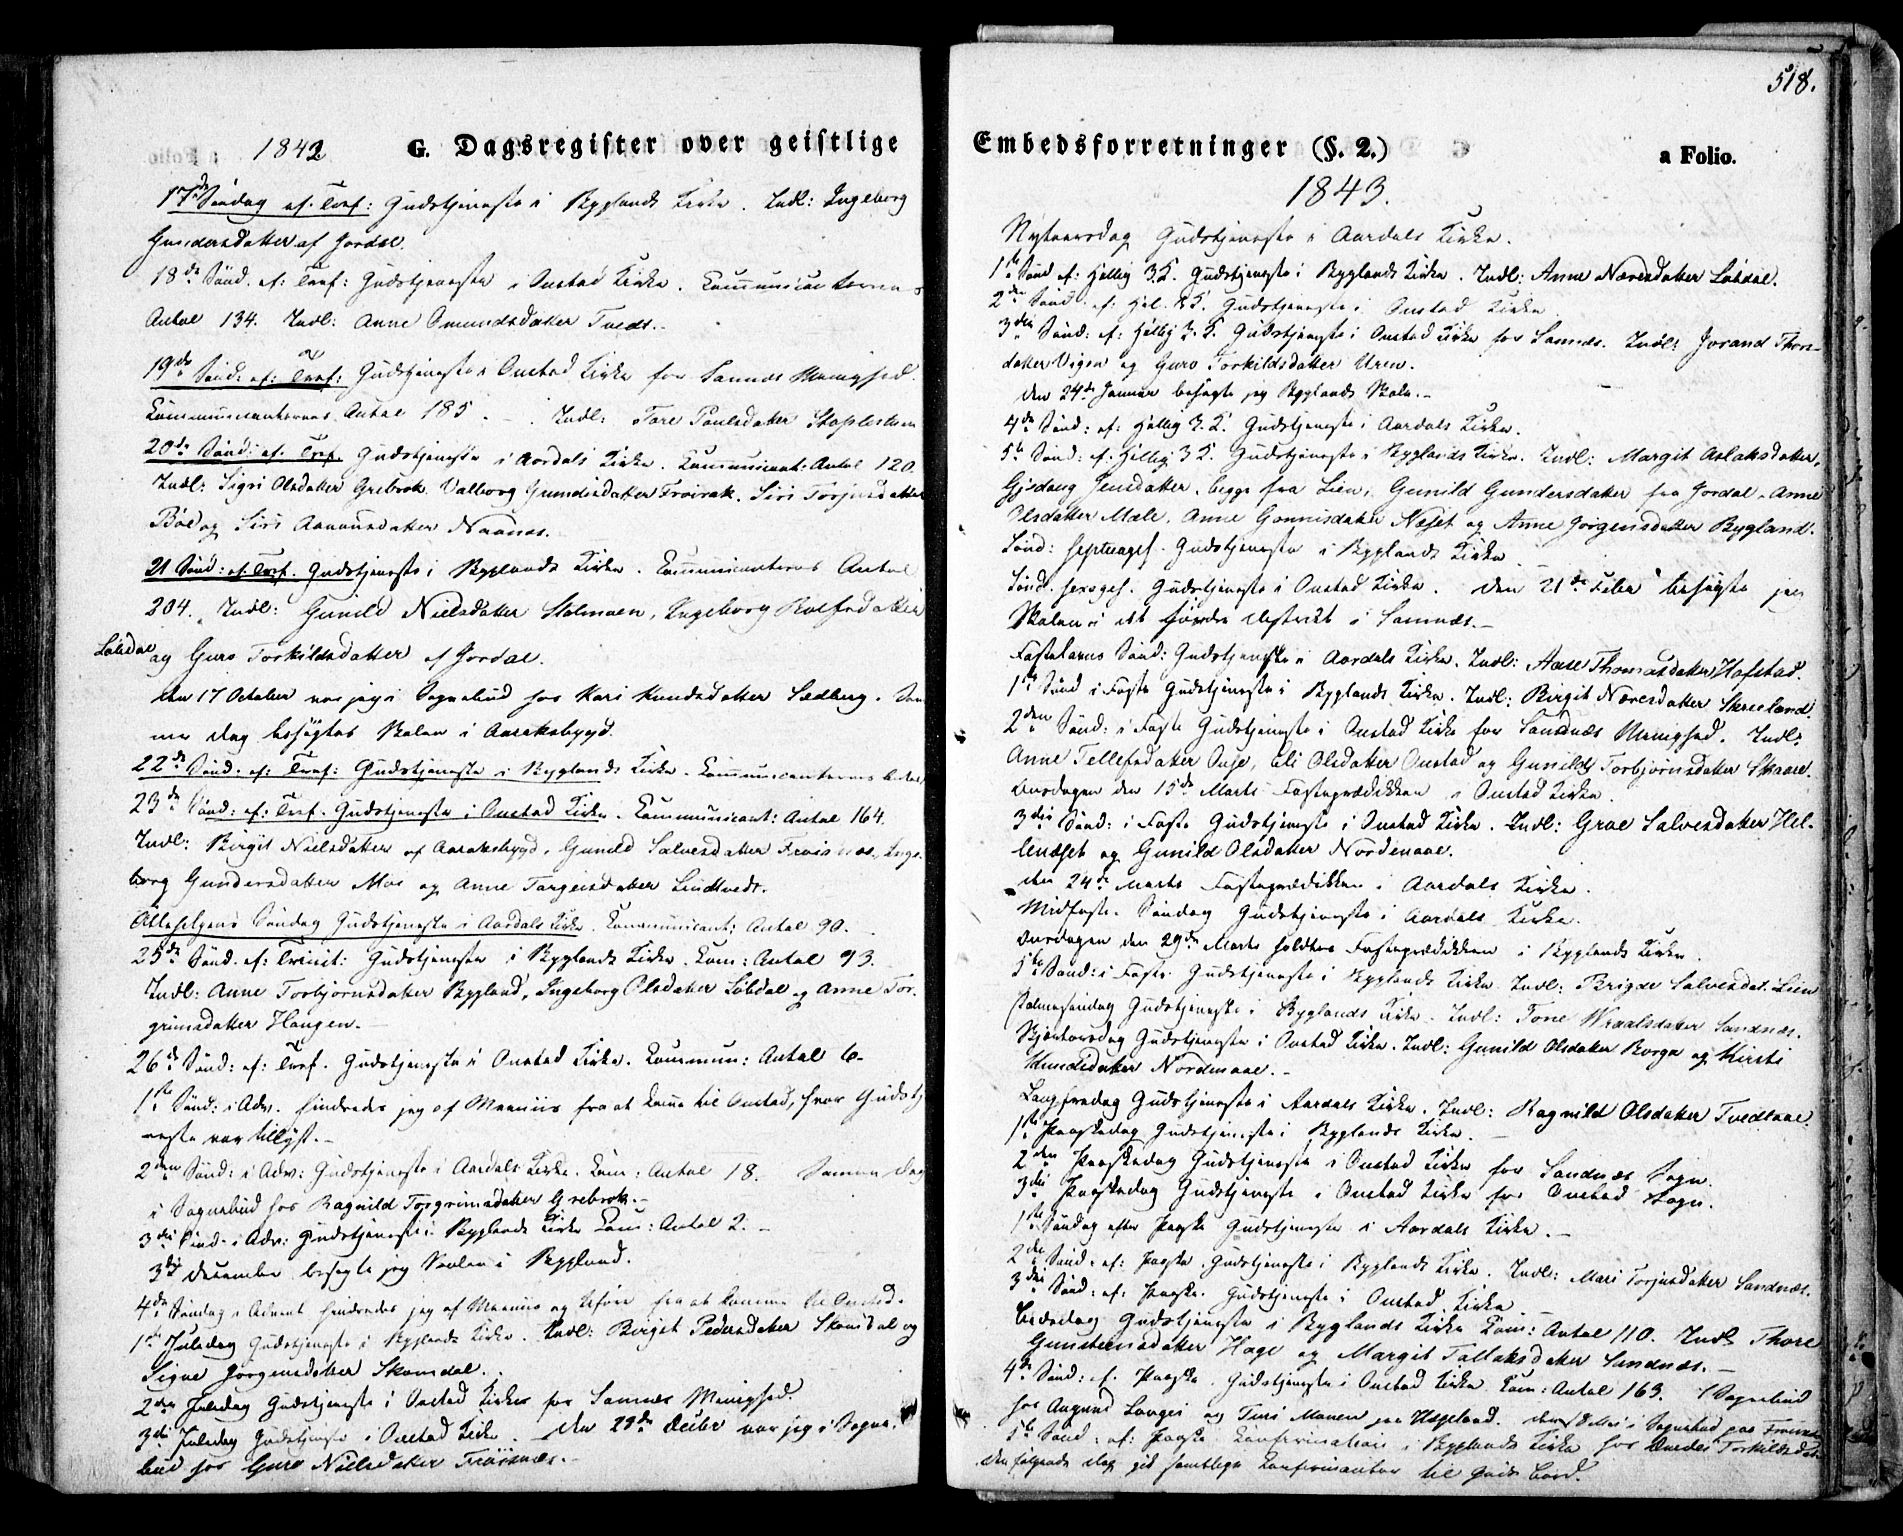 1842 G. Dagsregister over geistlige
17de Søndag ef. Tref: Gudstjeneste i Byglands Kirke. Indl: Ingeborg
Gundersdatter af Jordal.
18de Sønd. ef: Tref: Gudstjeneste i Oustad Kirke. Communicanternes
Antal 134. Indl: Anne Omundsdatter Tveds.
19de Sønd: ef: Tref: Gudstjeneste i Oustad Kirke for Sannæs Menighed.
Communicanternes Antal 185. Indl: Tore Paulsdatter
20de Sønd: ef. Tref. Gudstjeneste i Aardals Kirke. Communicant: Antal 120.
Indl: Sigri Olsdatter Grebrok. Valborg Gundersdatter Froirak. Siri Torjusdatter
Bøe og Siri Aanonsdatter Naanes.
21 Sønd: ef. Tref. Gudstjeneste i Byglands Kirke. Communicanternes Antal
204. Indl: Gunild Nielsdatter Ingeborg Rolfsdatter
Løbdal og Guro Torkildsdatter af Jordal.
Den 17 October var jeg i Sognebud hos Kari Knudsdatter Sædberg. Sam
me dag besøgtes Skolen i Aaraksbygd.
22de Sønd. ef: Tref: Gudstjeneste i Byglands Kirke. Communicanternes Antal
23de Sønd: ef: Tref. Gudstjeneste i Oustad Kirke. Communicant: Antal 164.
Indl: Birgit Nielsdatter af Aaraksbygd. Gunild Salvesdatter Froisnæs, Inge-
borg Gundersdatter Moe og Anne Targeisdatter Lindtvedt.
Allehelgens Søndag Gudstjeneste i Aardals Kirke. Communicant: Antal 90.
25de Sønd. ef: Trinit: Gudstjeneste i Byglands Kirke. Com: Antal 93.
Indl: Anne Torbjørnsdatter Bygland, Ingeborg Olsdatter Løbdal og Anne Tor-
grimsdatter Haugen.
26de Sønd: ef: Tref. Gudstjeneste i Oustad Kirke. Commun: Antal 6.
1ste Sønd: i Adv. hindredes jeg af Meeniis fra at komme til Oustad, hvor Gudstj
neste var tillyst.
2den Sønd: i Adv: Gudstjeneste i Aardals Kirke. Com: Antal 18. Samme dag
i Sognebud hos Ragnild Torgrimsdatter Grebrok.
3die Sønd. i Adv: Gudstjeneste i Byglands Kirke Com: Antal 2.
3die December besøgte jeg Skolen i Bygland.
4de Søndag i Advent hindredes jeg af Meeniis og Uføre fra at komme til Oustad.
1ste Juledag Gudstjeneste i Byglands Kirke. Indl: Birgit Pedersdatter Skomdal og
Signe Jørgensdatter Skomdal.
2den Juledag Gudstjeneste i Oustad Kirke for Sannæs Menighed.
3die Juledag Gudstjeneste i Oustad Kirke. Den 29de Decbr var jeg i Sogne-
bud hos Guro Nielsdatter Frøisnæs.
518.
Embedsforretninger (§. 2.) a Folio.
1843.
Nytaarsdag Gudstjeneste i Aardals Kirke.
1ste Sønd ef: Hellig 3K. Gudstjeneste i Byglands Kirke. Indl: Anne Næresdatter Løbdal.
2den Sønd: ef: Hel. 3K. Gudstjeneste i Oustad Kirke.
3die Sønd: ef: Hellig 3.K. Gudstjeneste i Oustad Kirke for Sannæs. Indl: Jorand Thors-
datter Vigen og Guro Torkildsdatter Uren.
Den 24de Januar besøgte jeg Byglands Skole.
4de Sønd: ef: Hellig 3.K. Gudstjeneste i Aardals Kirke.
5te Sønd: ef: Hellig 3K. Gudstjeneste i Byglands Kirke. Indl: Margit Aslaksdatter,
Gjedaug Jensdatter, begge fra Lien, Gunild Gundersdatter fra Jordal. Anne
Olsdatter Mæle, Anne Gunnisdatter Næset og Anne Jørgensdatter Bygland.
Sønd: Septuages. Gudstjeneste i Byglands Kirke
Sønd. Sexages. Gudstjeneste i Oustad Kirke. Den 21de Febr besøgte jeg
Skolen i det søndre District i Sannæs.
Fastelavns Sønd: Gudstjeneste i Aardals Kirke. Indl: Aase Thomasdatter Hafstad.
1ste Sønd i Faste Gudstjeneste i Byglands Kirke. Indl: Birgit Næresdatter Skreeland.
2den Sønd: i Faste Gudstjeneste i Oustad Kirke for Sandnæs Menighed. Indl:
Anne Tellefsdatter Ose, Eli Olsdatter Oustad og Gunild Torbjørnsdatter Skaare.
Onsdagen den 15de Marts Fasteprædikken i Oustad Kirke.
3die Sønd: i Faste Gudstjeneste i Oustad Kirke. Indl: Groe Salvesdatter Hel-
lenæset og Gunild Olsdatter Nordenaae.
Den 24de Marts Fasteprædikken i Aardals Kirke.
Midfaste Søndag Gudstjeneste i Aardals Kirke.
Onsdagen den 29de Marts holdtes Fasteprædikken i Byglands Kirke.
5te Sønd: i Faste Gudstjeneste i Byglands Kirke. Indl: Brigde Salvesdat. Lien
Palmesøndag Gudstjeneste i Byglands Kirke. Indl: Tone Wraalsdatter Sandnæs.
Skjærtorsdag Gudstjeneste i Oustad Kirke. Indl: Gunild Olsdatter Borge og Kirsti
Nordenaae.
Langfredag Gudstjeneste i Aardals Kirke. Indl: Ragnild Olsdatter Tvedtaae.
1ste Paaskedag Gudstjeneste i Byglands Kirke.
2den Paaskedag Gudstjeneste i Oustad Kirke for Sandnæs Sogn.
3die Paaskedag Gudstjeneste i Oustad Kirke for Oustad Sogn.
1ste Søndag efter Paaske Gudstjeneste i Aardals Kirke.
2den Sønd. ef: Paaske. Gudstjeneste i Byglands Kirke. Indl: Mari Torjusdatter Sandnæs.
3die Sønd. ef: Paaske. Gudstjeneste i Oustad Kirke.
Bededag Gudstjeneste i Byglands Kirke Com: Antal 110. Indl Thore
Gundersdatter Hage og Margit Tallaksdatter Sandnæs.
4de Sønd: ef. Paaske. Gudstjeneste i Oustad Kirke Com: Antal 163. Sognebud
hos Aagund Langei og Turi Monen paa Hægeland. Den Sognebud paa
5te Sønd: ef: Paaske Confirmation i Byglands Kirke hos Torkildsdat
den følgende dag gik samtlige Confirmanter til Guds bord.